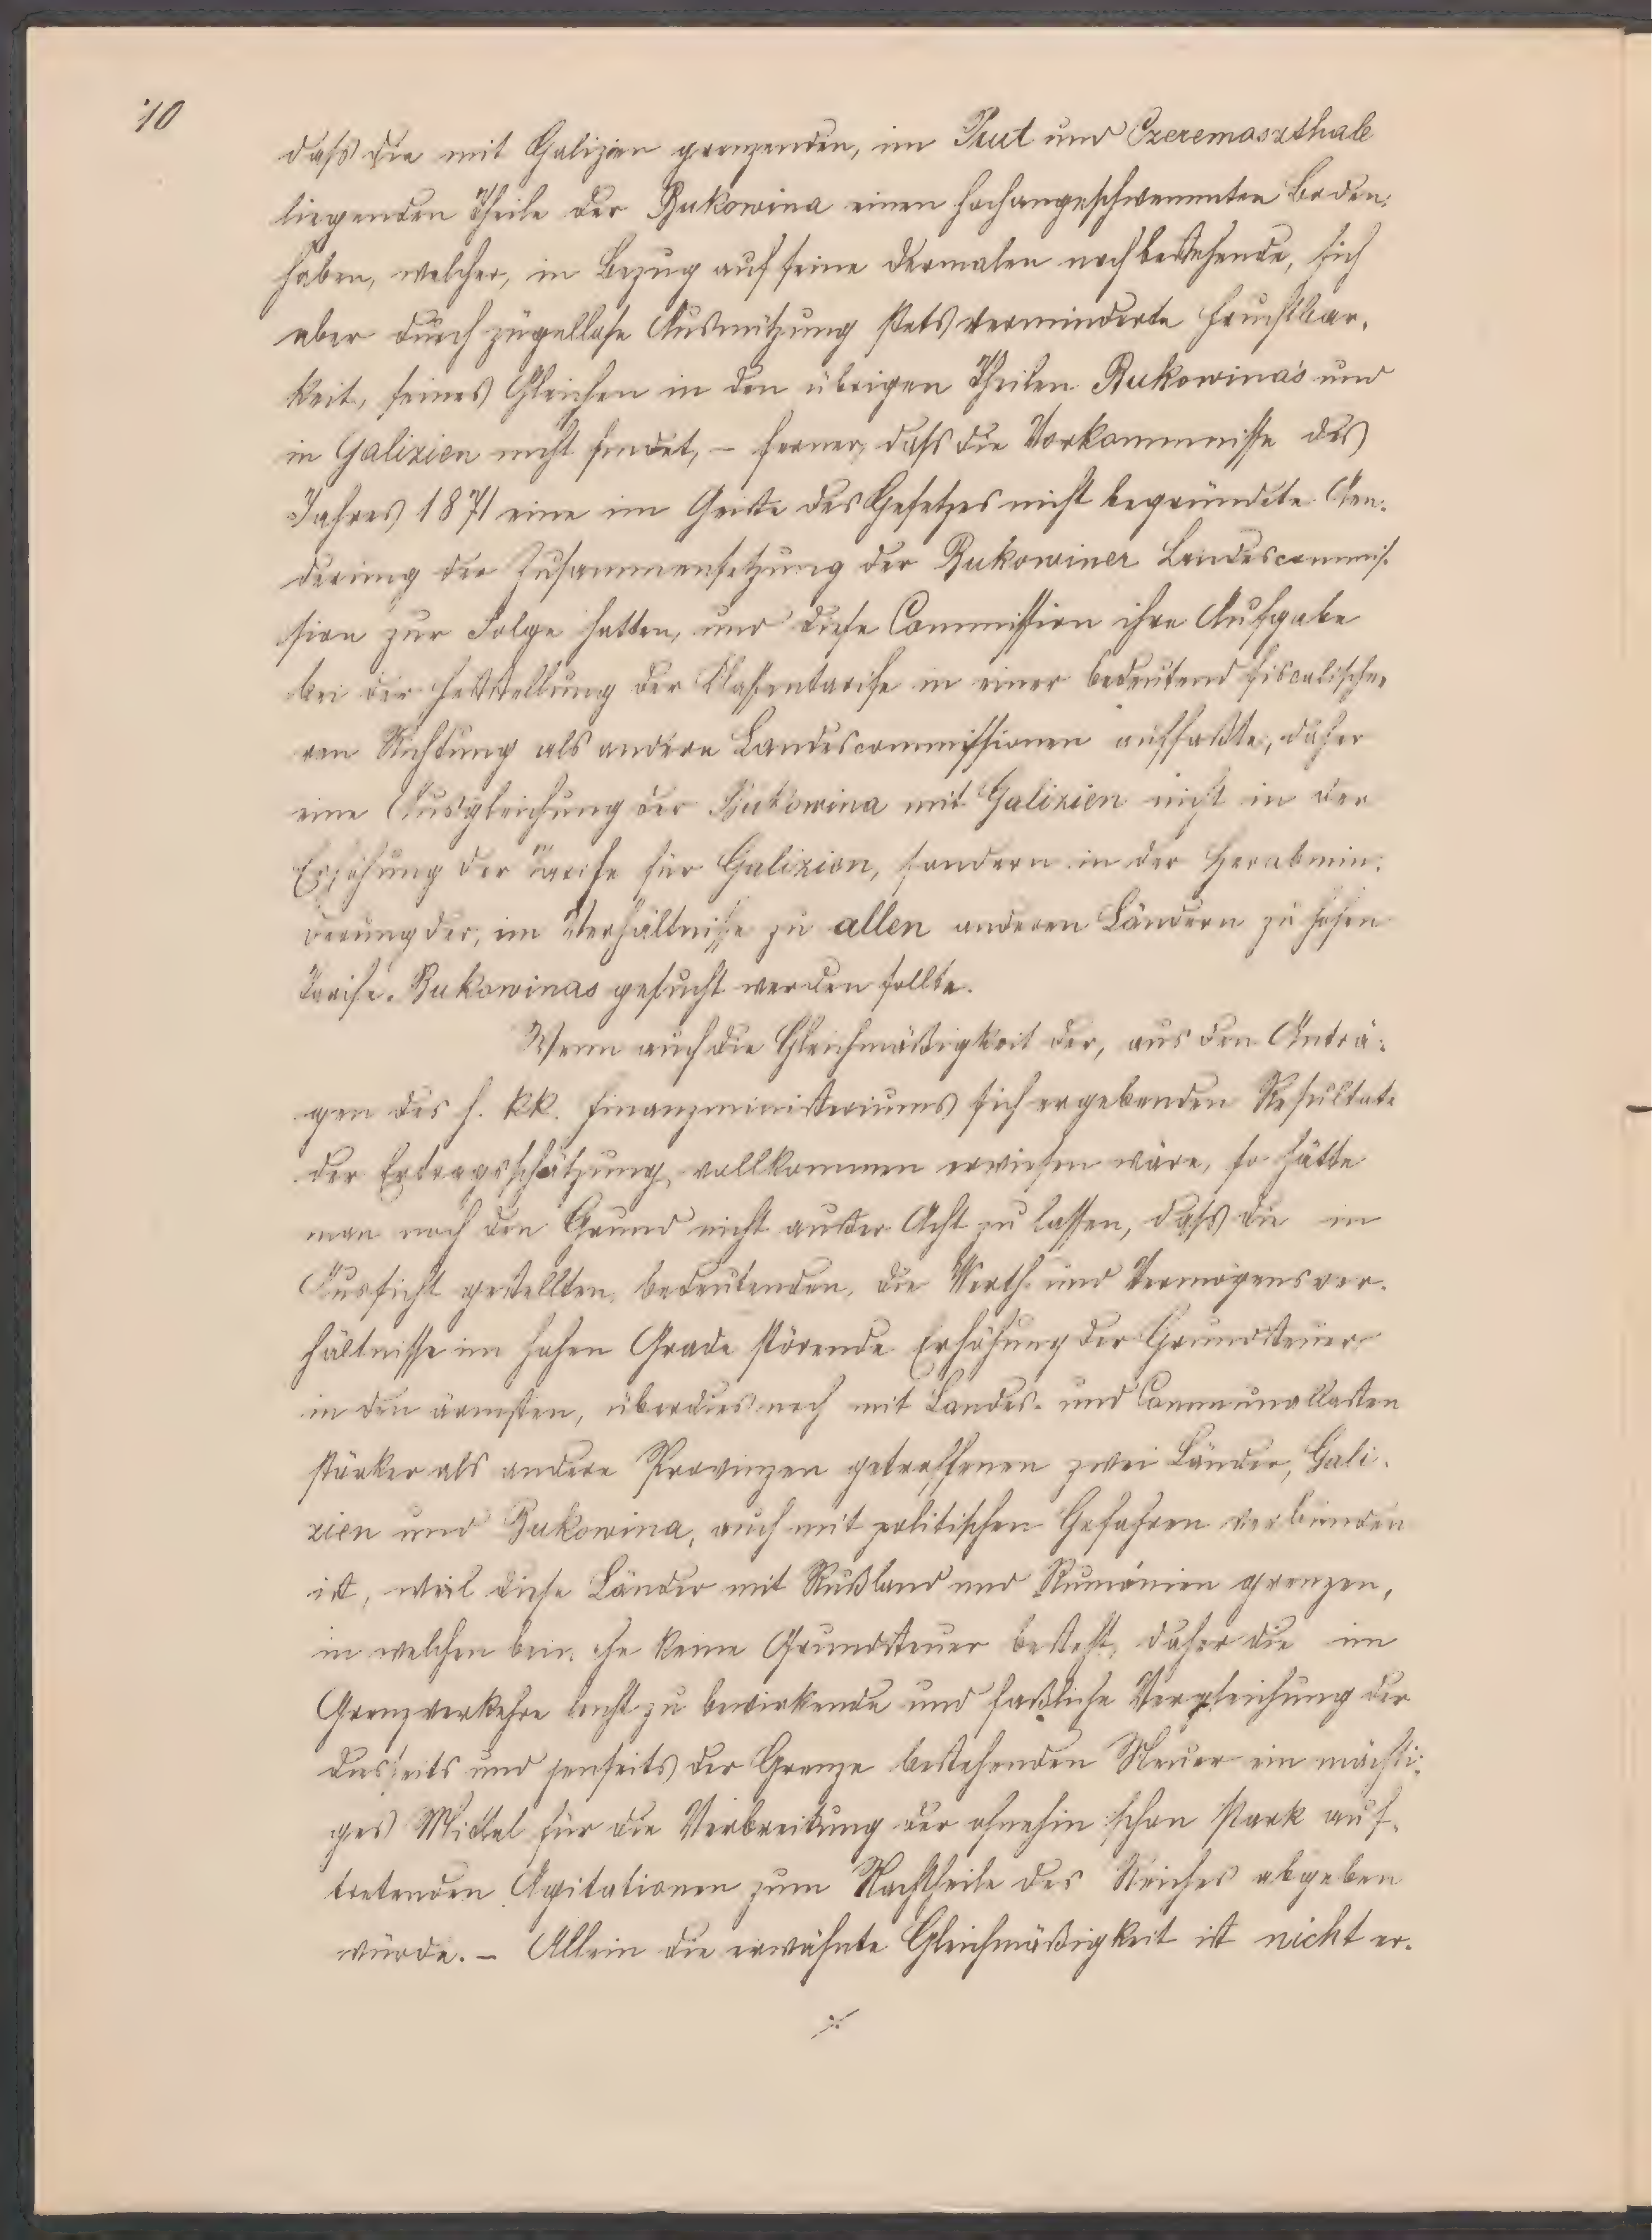 10
daß die mit Galizien grenzenden, im Prut und Czeremoszthale
liegenden Theile der Bukowina einen hochangeschwemmten Boden
haben, welcher, in Bezug auf seine dermalen noch bestehende, sich
aber durch zügellose Ausnützung stets verminderte Fruchtbar-
keit, seines Gleichen in den übrigen Theilen Bukowina's und
in Galizien nicht findet, – ferner, daß die Vorkommnisse des
Jahres 1871 eine im Geiste des Gesetzes nicht begründete Aen-
derung der Zusammensetzung der Bukowiner Landescommis-
sion zur Folge hatten, und diese Commission ihre Aufgabe
bei der Feststellung der Classentarife in einer bedeutend fiscalische-
ren Richtung als andere Landescommissionen auffaßte, daher
eine Ausgleichung der Bukowina mit Galizien nicht in der
Erhöhung der Tarife für Galizien, sondern in der Herabmin-
derung der, im Verhältnisse zu allen anderen Ländern zu hohen
Tarife Bukowinas gesucht werden sollte.
Wenn auch die Gleichmäßigkeit der, aus den Anträ-
gen des h. kk. Finanzministeriums sich ergebenden Resultate
der Ertragsschätzung, vollkommen erwiesen wäre, so hätte
man noch den Grund nicht außer Acht zu lassen, daß die in
Aussicht gestellten, bedeutenden, die Werth- und Vermögensver-
hältnisse im hohen Grade störende Erhöhung der Grundsteuer
in den ärmsten, überdies noch mit Landes- und Communallasten
stärker als andere Provinzen getroffenen zwei Länder, Gali-
zien und Bukowina, auch mit politischen Gefahren verbunden
ist, weil diese Länder mit Rußland und Rumänien grenzen,
in welchen beinahe keine Grundsteuer besteht, daher die im
Grenzverkehre leicht zu bewirkende und faßliche Vergleichung der
diesseits und jenseits der Grenze bestehenden Steuer ein mächti-
ges Mittel für die Verbreitung der ohnehin schon stark auf-
tretenden Agitationen zum Nachtheile des Reiches abgeben
würde. – Allein die erwähnte Gleichmäßigkeit ist nicht er-